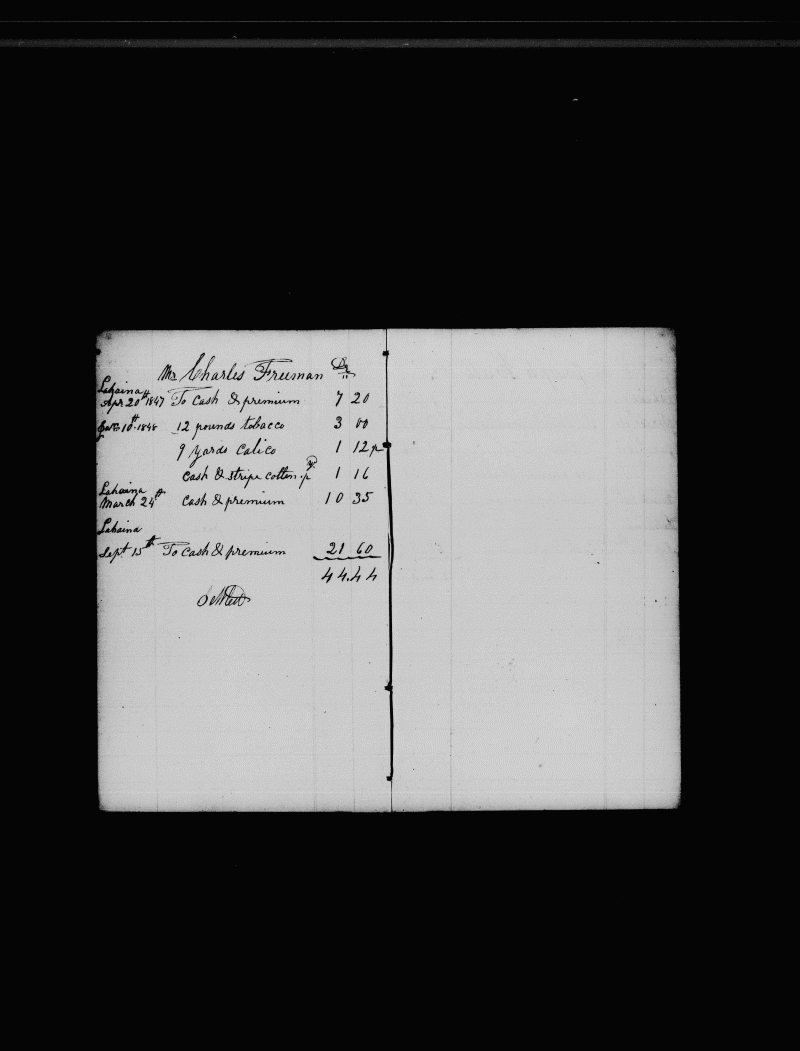 Mr Charles Freeman Dr
Lahaina
Apr 20th 1847 To Cash & premium 7 20
10th 1848 12 pounds tobacco 3 00
9 yards Calico 1 12
Cash & stripe cotton 1 16
Lahaina
March 24th Cash & premium 10 35
Lahaina
Sept 15th To Cash & premium 21 60
44.44
Settled